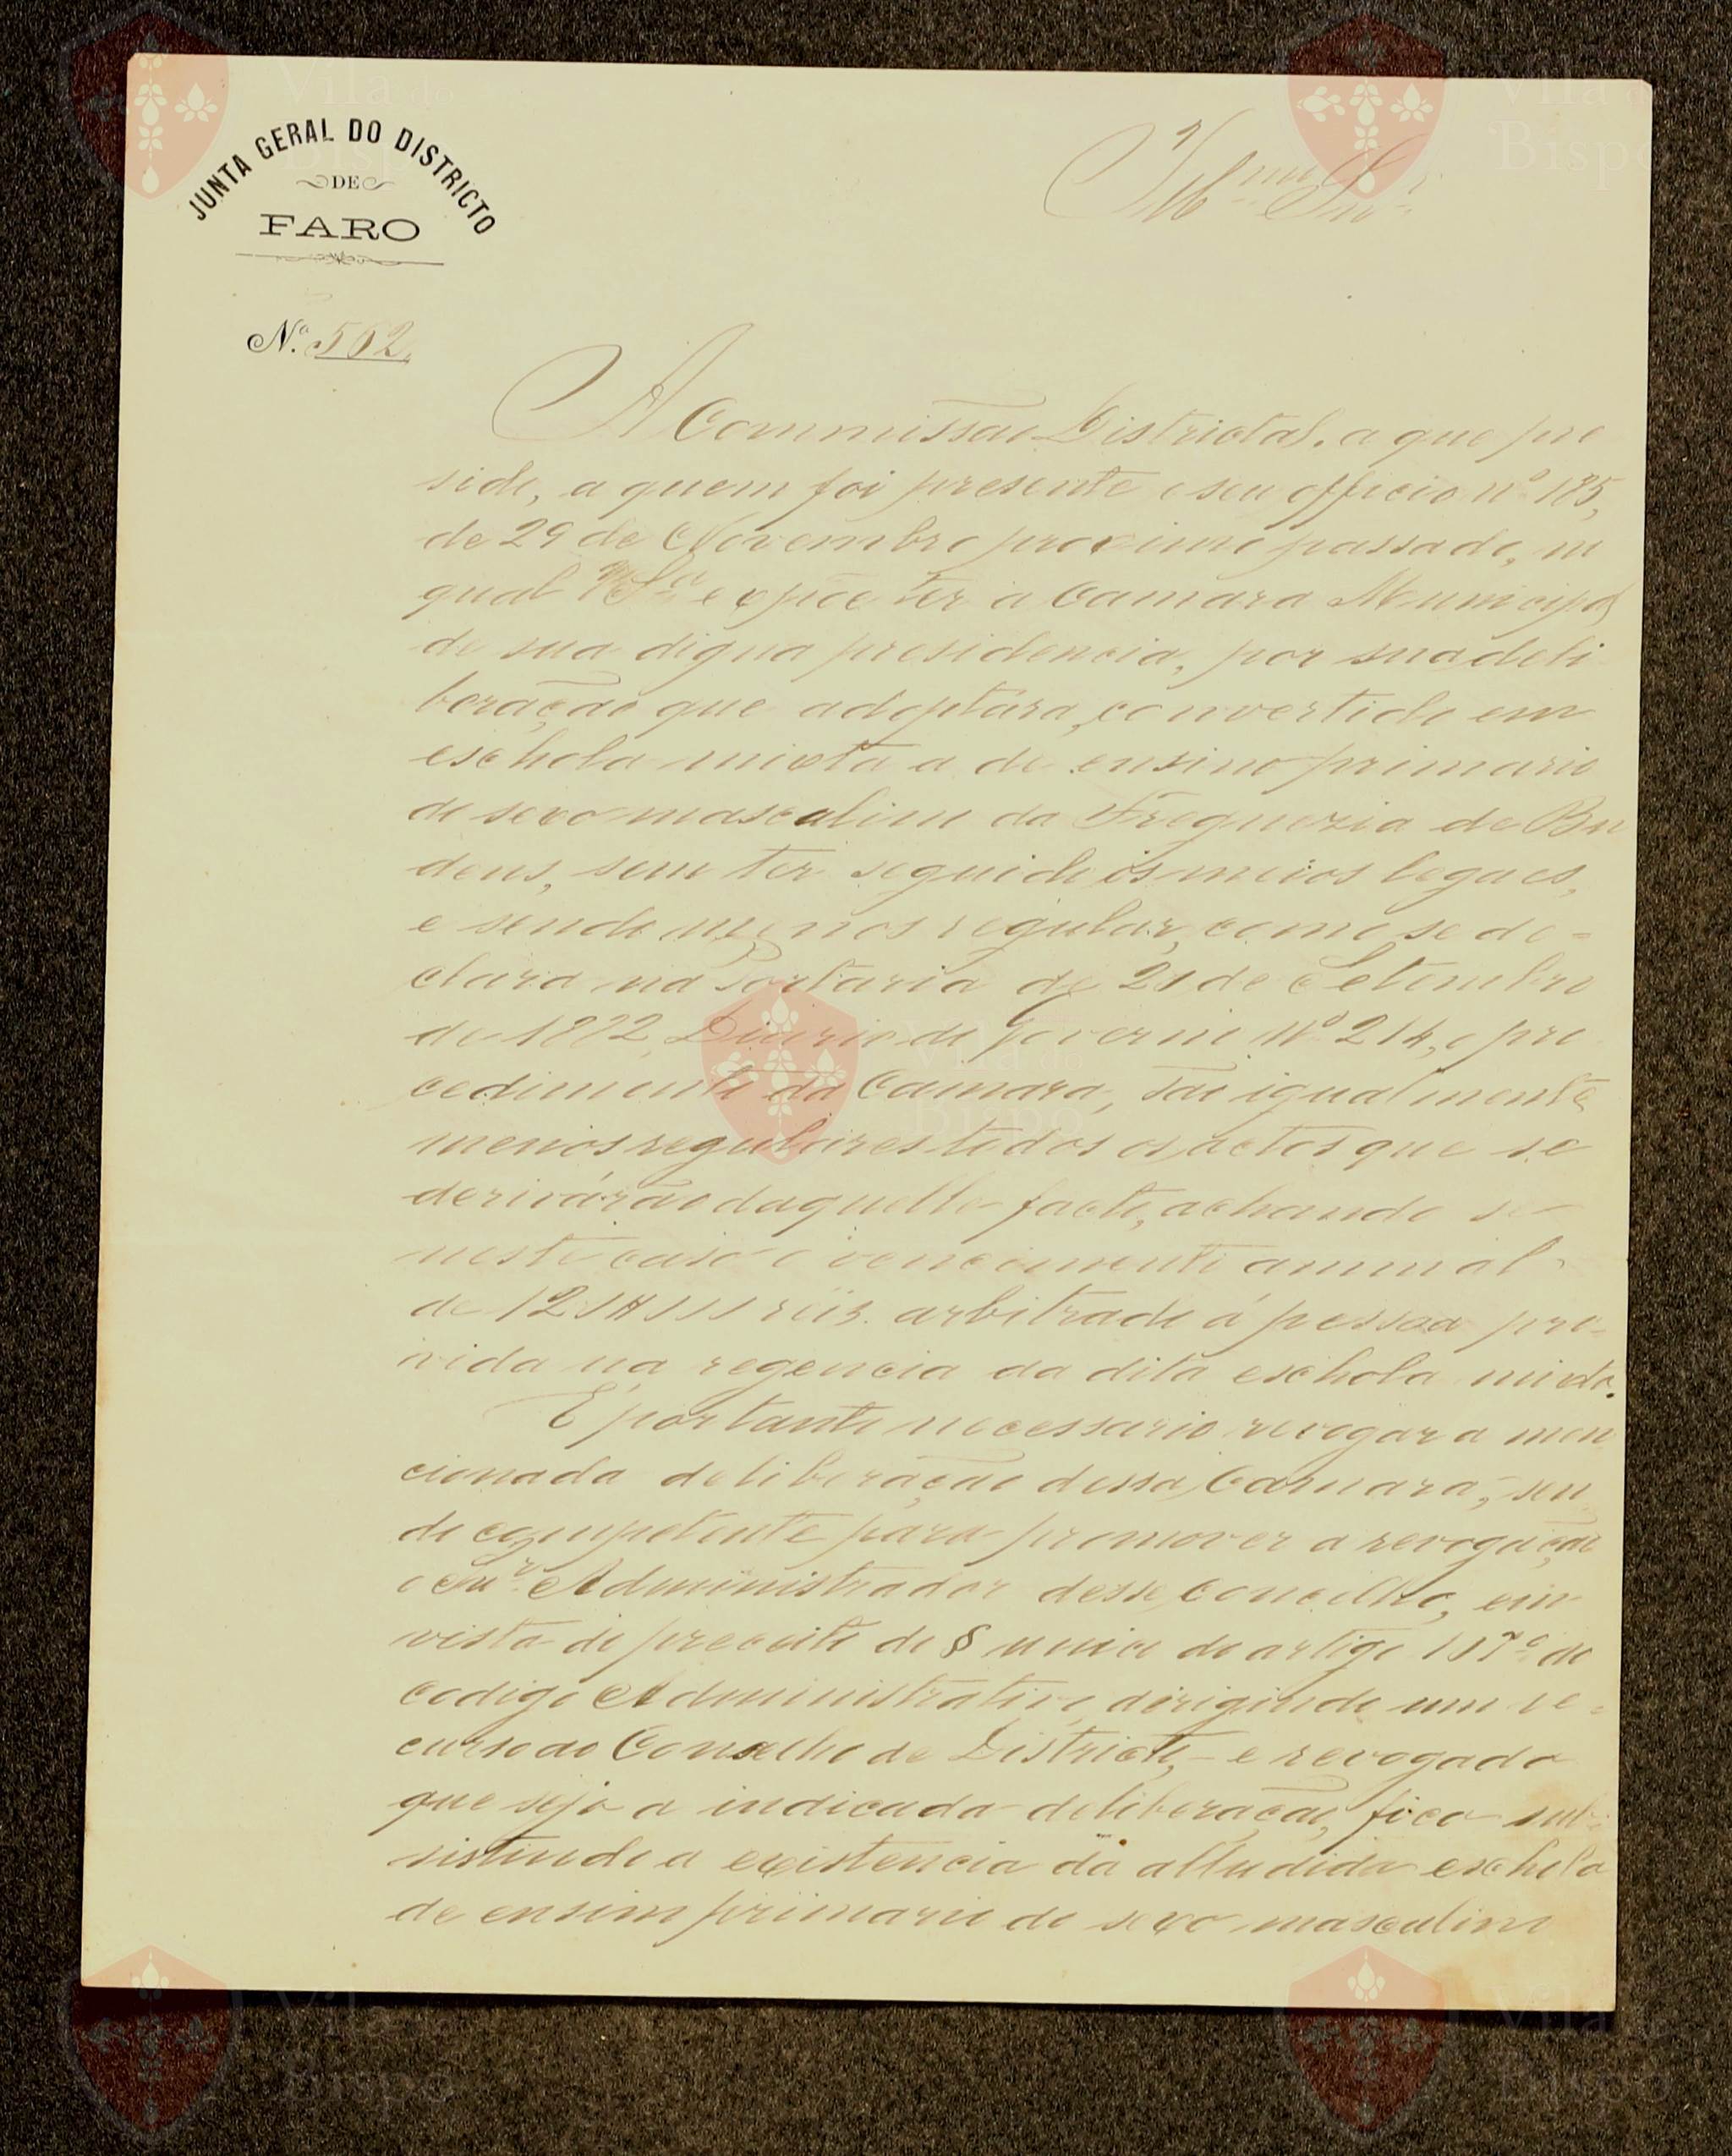 JUNTA GERAL DO DISTRICTO
DE
FARO
Nº 562
Illmo Snr
A Commissão Districtal, a que pre
sido, a quem foi presente o seu officio nº 185,
de 29 de Novembro proximo passado, no
qual V. Sª expõe ter a Camara Municipal
de sua digna presidencia, por sua deli
beração que adoptára, convertido em
eschola mixta a de ensino primario
do sexo masculino da Freguezia de Bu
dens, sem ter seguido os meios legaes,
e sendo menos regular, como se de-
clara na Portaria de 21 de Setembro
de 1882, Diario do Governo Nº 214, o pro
cedimento da Camara, são igualmente
menos regulares todos os actos que se
derivárão daquelle facto, achando se
neste caso o vencimento annual
de reis arbitrado á pessoa pro-
vida na regencia da dita eschola mixta.
É portanto necessario revogar a men
cionada deliberação dessa Camara, sen
do competente para promover a revogação
o Snr. Administrador desse concelho, em
vista do preceito do § unico do artigo do
codigo Administrativo, dirigindo um re-
curso ao Conselho de Districto, e revogada
que seja a indicada deliberação, fica sub-
sistindo a existencia da alludida eschola
de ensino primario do sexo masculino
Vila do
Bispo